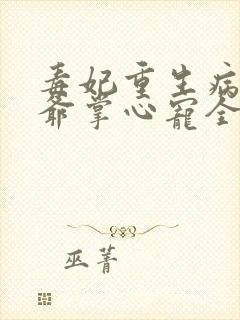 毒妃重生病
爷掌心宠全
巫菁